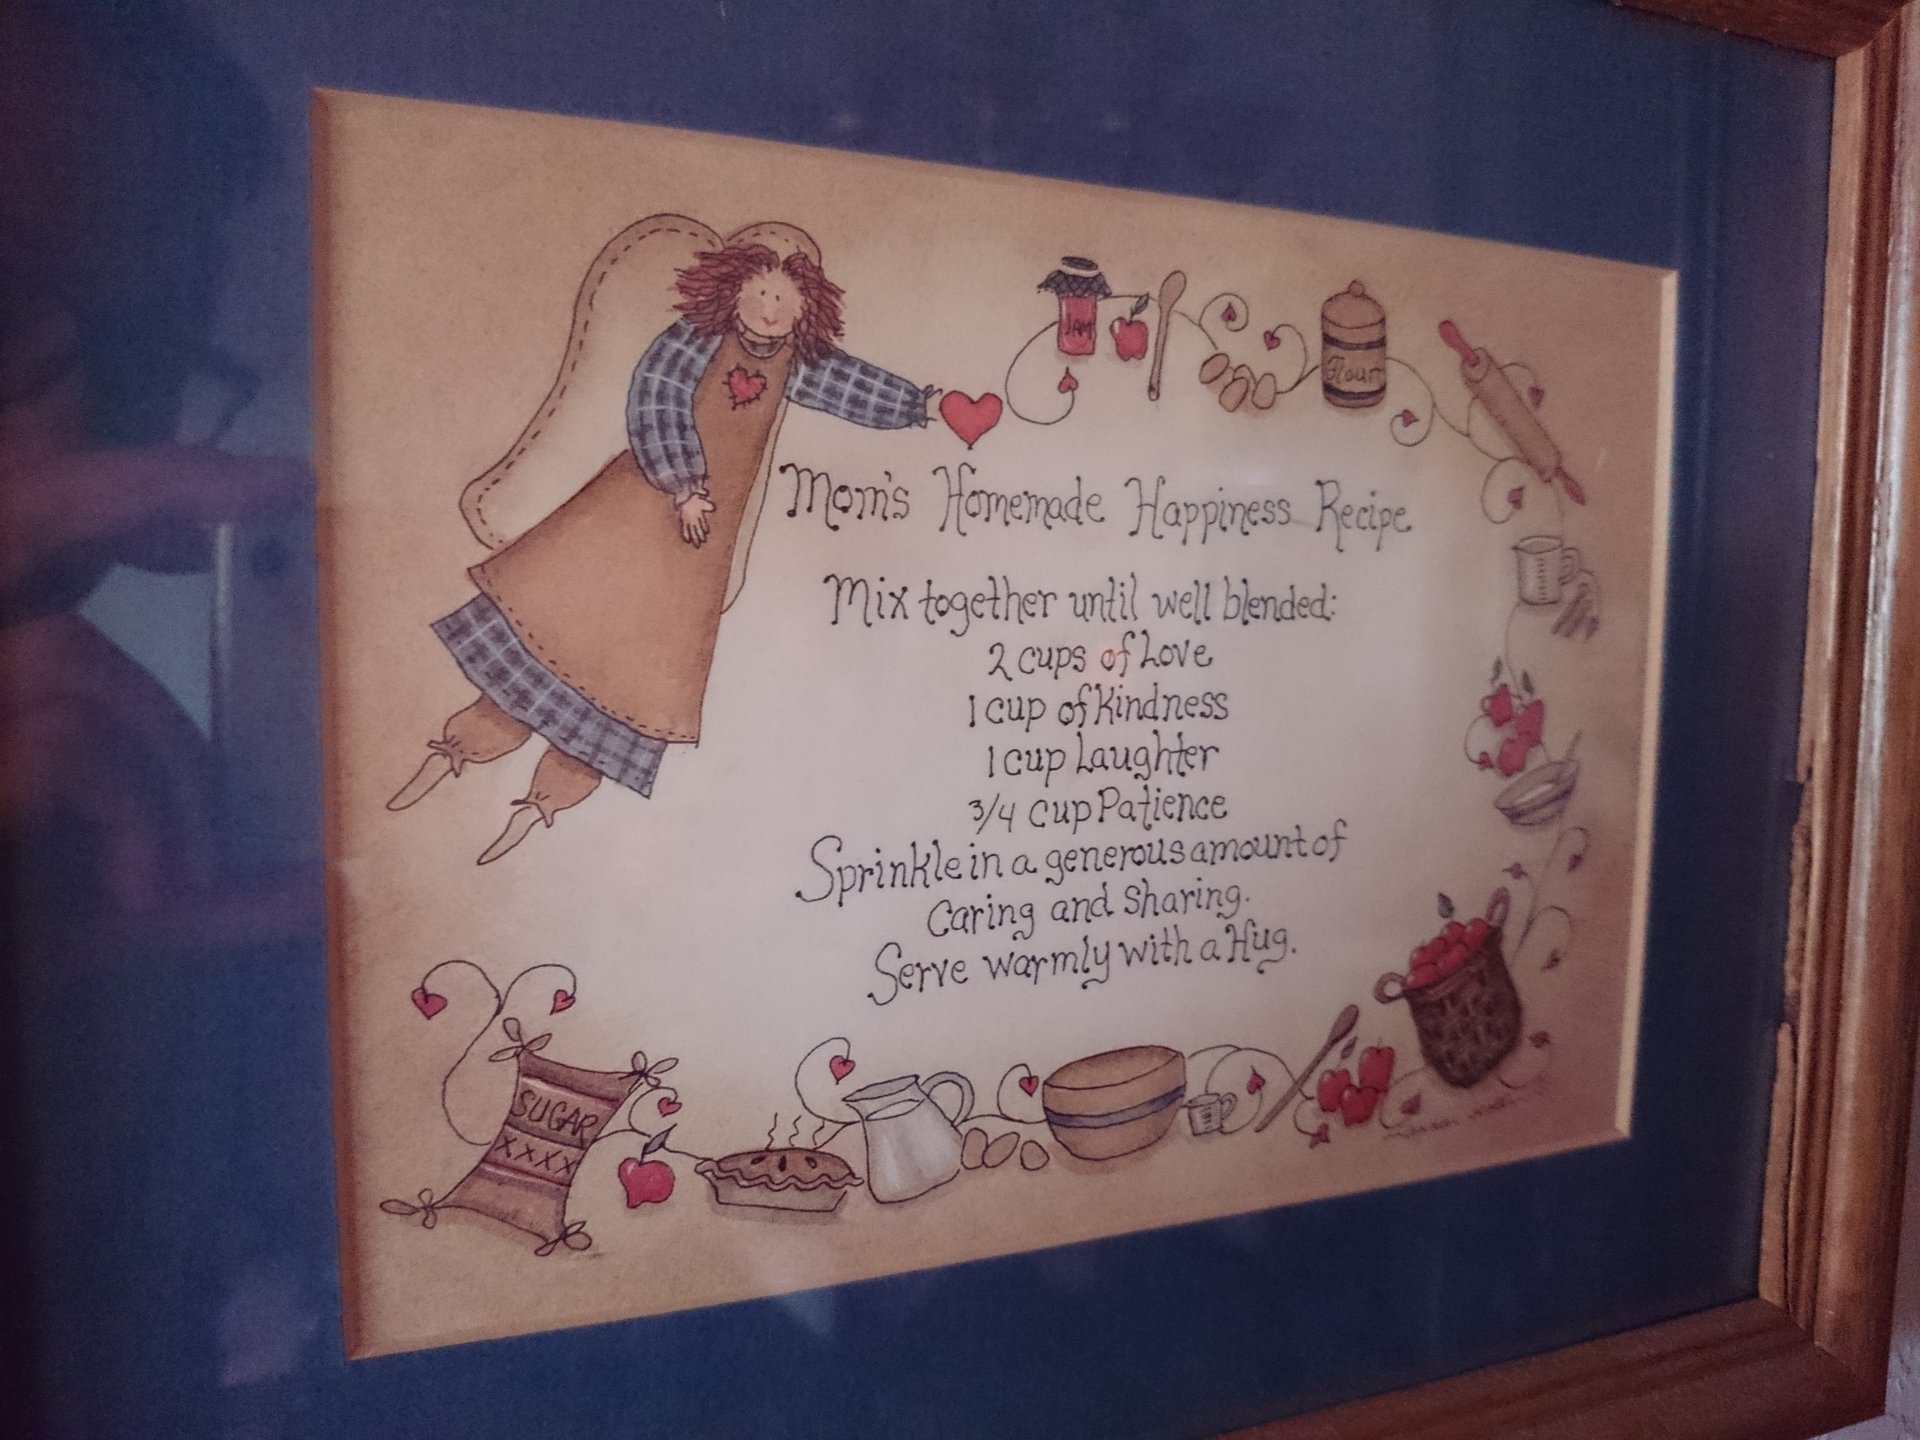 JAM
Flour
Mom's Homemade Happiness Recipe
Mix together until well blended:
2 cups of Love
1 cup of Kindness
1 cup Laughter
3/4 cup Patience
Sprinkle in a generous amount of
Caring and Sharing.
Serve warmly with a Hug.
SUGAR
XXXX